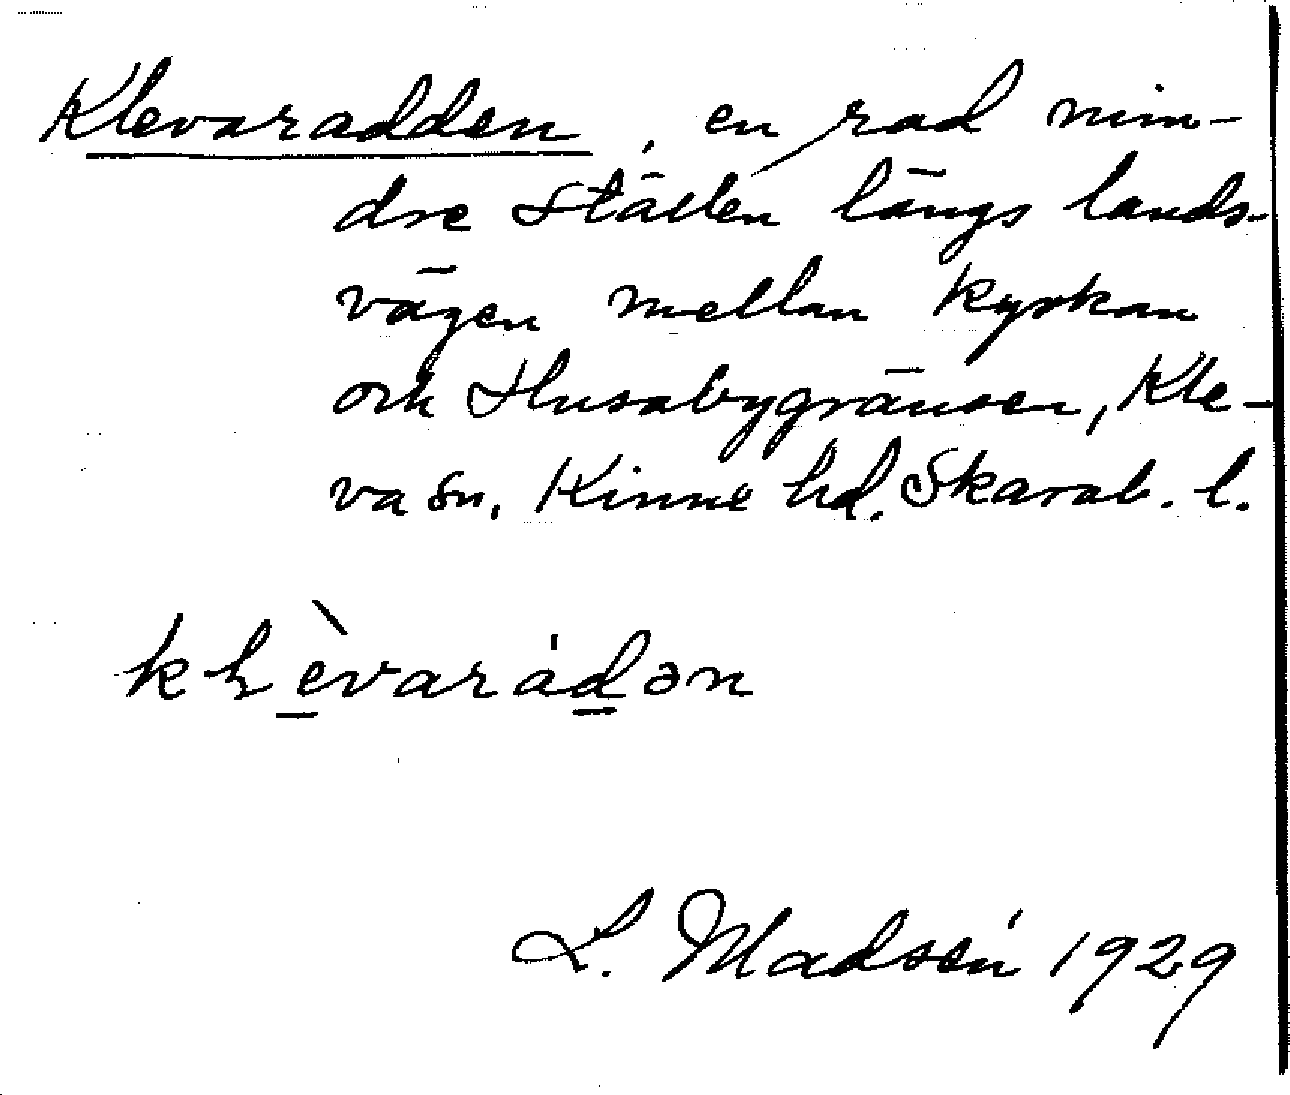 Klevaradden, en rad min-
dre ställen längs lands-
vägen mellan kyrkan
och Husabygränsen, Kle-
va sn. Kinne hd. Skarab. l.
L. Madsén 1929